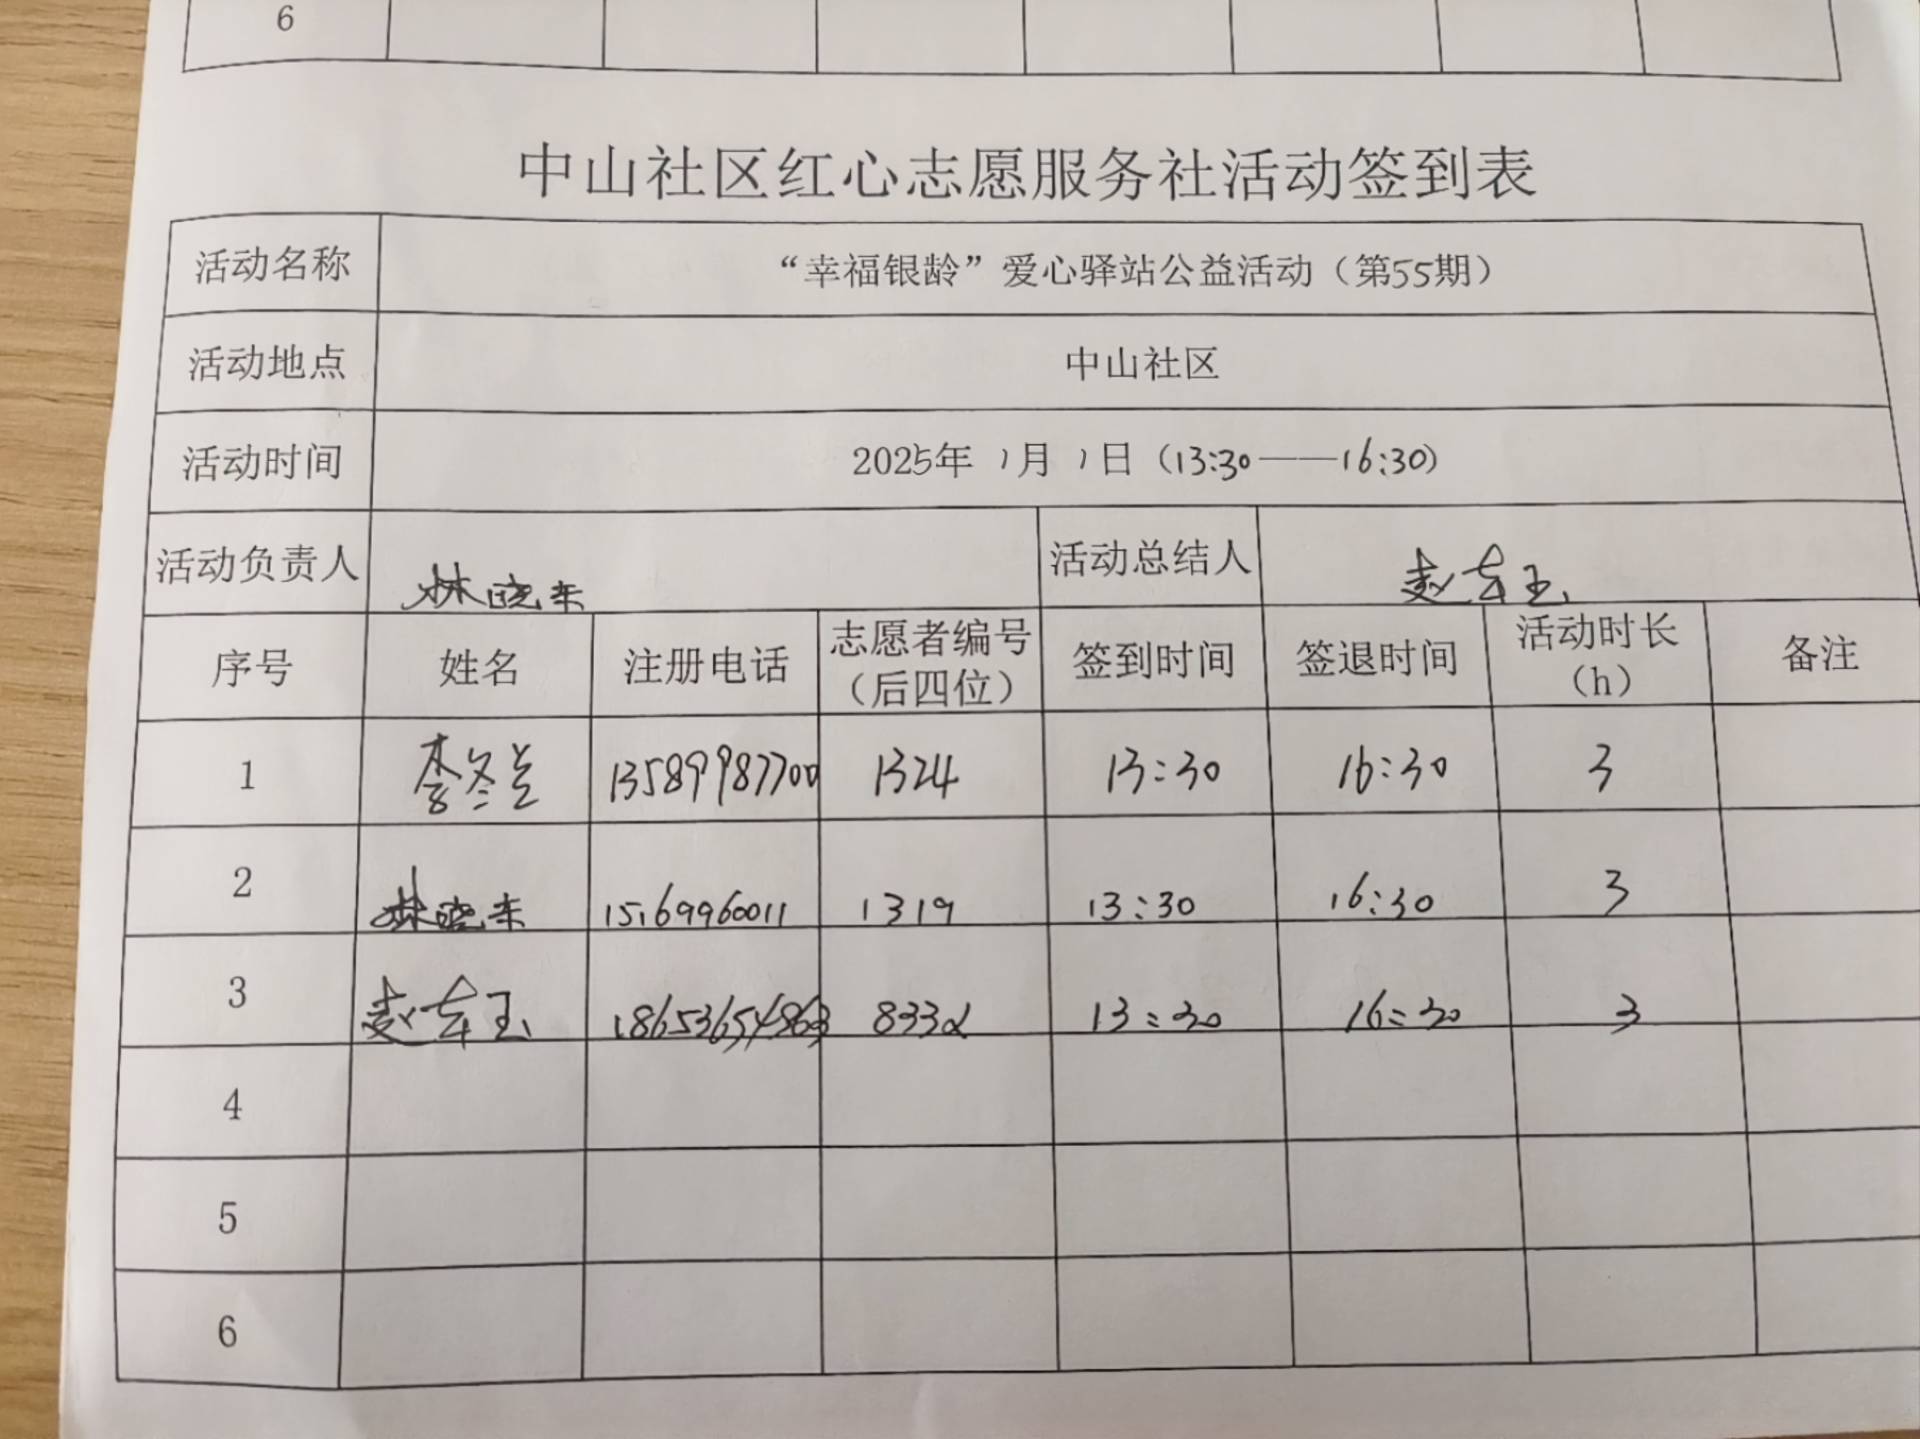 6
中山社区红心志愿服务社活动签到表
活动名称 “幸福银龄”爱心驿站公益活动（第55期）
活动地点 中山社区
活动时间 2025年1月1日（13:30——16:30）
活动负责人 林晓东 活动总结人
序号 姓名 注册电话 志愿者编号（后四位） 签到时间 签退时间 活动时长（h） 备注
1 李冬兰 13589987700 1324 13:30 16:30 3
2 林晓东 15169960011 1319 13:30 16:30 3
3 13:30 16:30 3
4
5
6